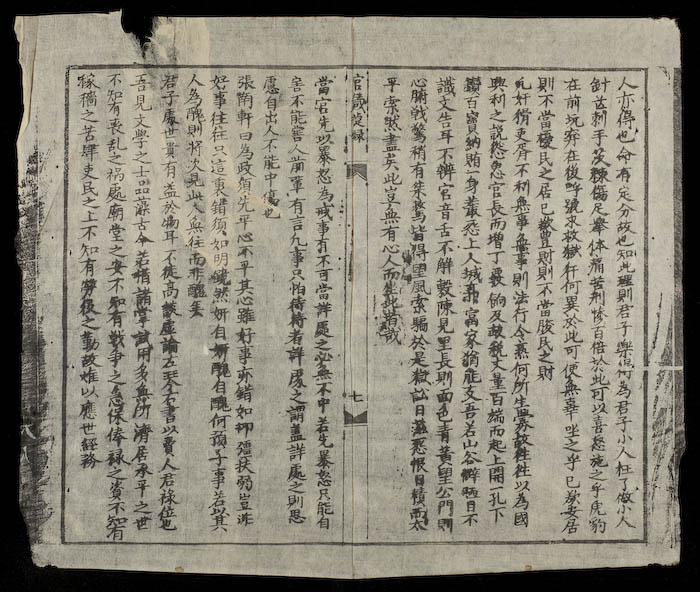 人亦也命有定分故也知此理則君子樂得為君子小人枉了做小人
針芒刺手茨棘傷足舉体痛苦刑慘百倍於此可以喜怒施之乎虎豹
在前坑穽在後呼號求救獄犴何異於此可使無辜坐之乎已欲安居
則不當擾民之居已欲豊財則不當朘民之財
凡奸猾吏胥不利無事無事則法行令熟何所生弊故往往以為國
興利之説慫恿官長而增丁覈餉及敲稅丈量百端而起上開一孔下
鑽百竇納賄一身叢怨上人城市富家猶能支吾若山谷僻陋目不
識文告耳不辨官音舌不解敷陳見里長則面色青黄望公門則
心腑戦驚稍有桀驁皆得望風索騙於是獄訟日滋怨恨日積而太
平索然盡矣此豈無有心人而坐此皆哉
官箴捷録
七
當官先以暴怒為戒事有不可當詳處之必無不中若先暴怒只能自
害不能害人前輩有言凡事只怕待待者詳處之謂盖詳處之則思
慮自出人不能中傷也
張南軒曰為政須先平心不平其心雖好事亦錯如抑强扶弱豈非
好事往往只這裏錯須如明鏡然妍自妍醜自醜何預予事若以其
人為醜則將次見此人無往而非醜矣
君子處世貴有益於物耳不徒高談虛論左琴右書以費人君祿位也
吾見文學之士品藻古今若指諸掌試用多無所濟居承平之世
不知有喪乱之禍處廟堂之安不知有戦争之急保俸祿之資不知有
稼穡之苦肆吏民之上不知有勞役之勤故难以應世経務